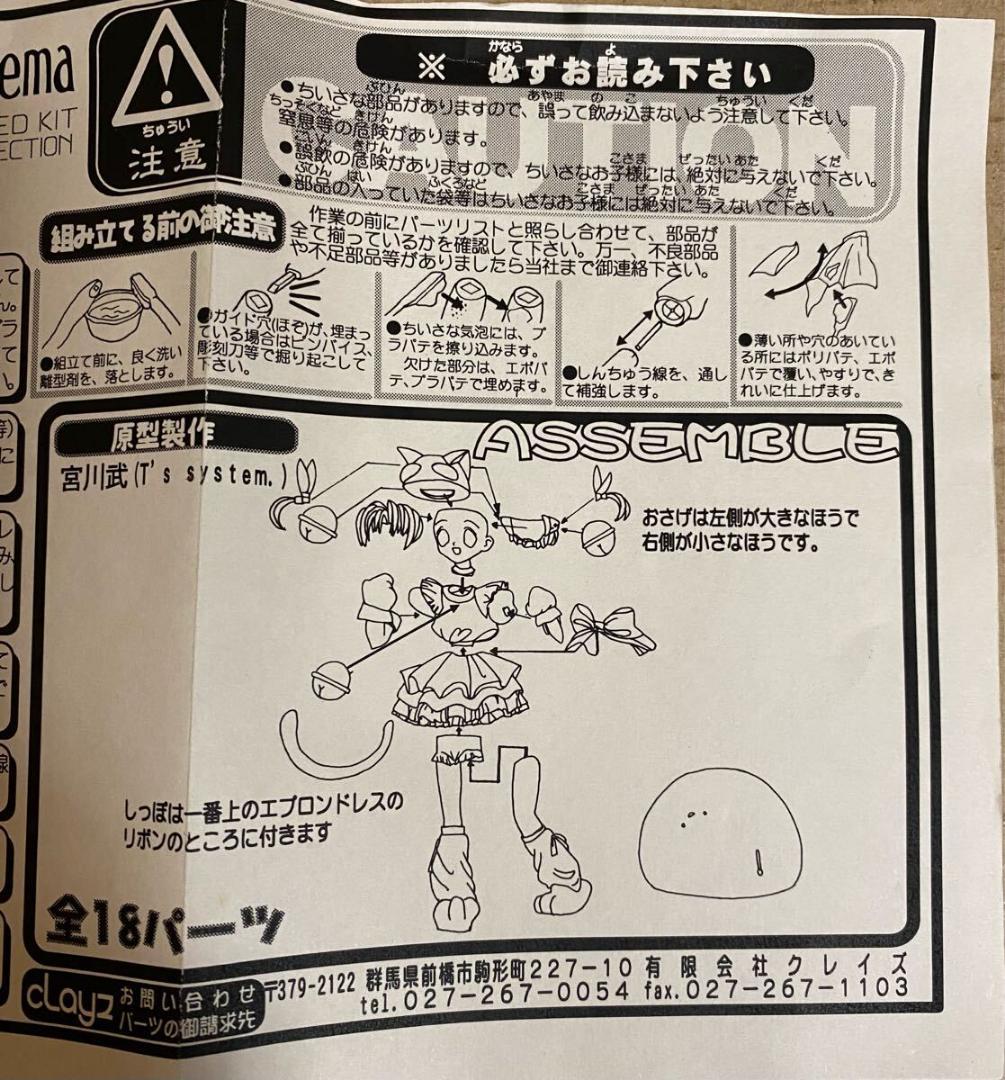 ema
ED KIT
ECTION
ちゅうい
注意
CAUTION
かなら よ
※ 必ずお読み下さい
ぶひん あやま の こ ちゅうい くだ
●ちいさな部品がありますので、誤って飲み込まないよう注意して下さい。
ちっそくなど きけん
窒息等の危険があります。
ごいん きけん こさま ぜったい あた くだ
●誤飲の危険がありますので、ちいさなお子様には、絶対に与えないで下さい。
ぶひん はい ふくろなど こさま ぜったい あた くだ
●部品の入っていた袋等はちいさなお子様には絶対に与えないで下さい。
組み立てる前の御注意
作業の前にパーツリストと照らし合わせて、部品が
全て揃っているかを確認して下さい。万一、不良部品
や不足部品等がありましたら当社まで御連絡下さい。
●組立て前に、良く洗い
離型剤を、落とします。
●ガイド穴(ほぞ)が、埋まっ
ている場合はピンバイス、
彫刻刀等で掘り起こして
下さい。
●ちいさな気泡には、プ
ラパテを擦り込みます。
欠けた部分は、エポパ
テ、プラパテで埋めます。
●しんちゅう線を、通し
て補強します。
●薄い所や穴のあいてい
る所にはポリパテ、エポ
パテで覆い、やすりで、き
れいに仕上げます。
原型製作
ASSEMBLE
宮川武(T's system.)
おさげは左側が大きなほうで
右側が小さなほうです。
しっぽは一番上のエプロンドレスの
リボンのところに付きます
全18パーツ
clayz
お問い合わせ
パーツの御請求先
〒379-2122 群馬県前橋市駒形町227-10 有限会社クレイズ
tel.027-267-0054 fax.027-267-1103